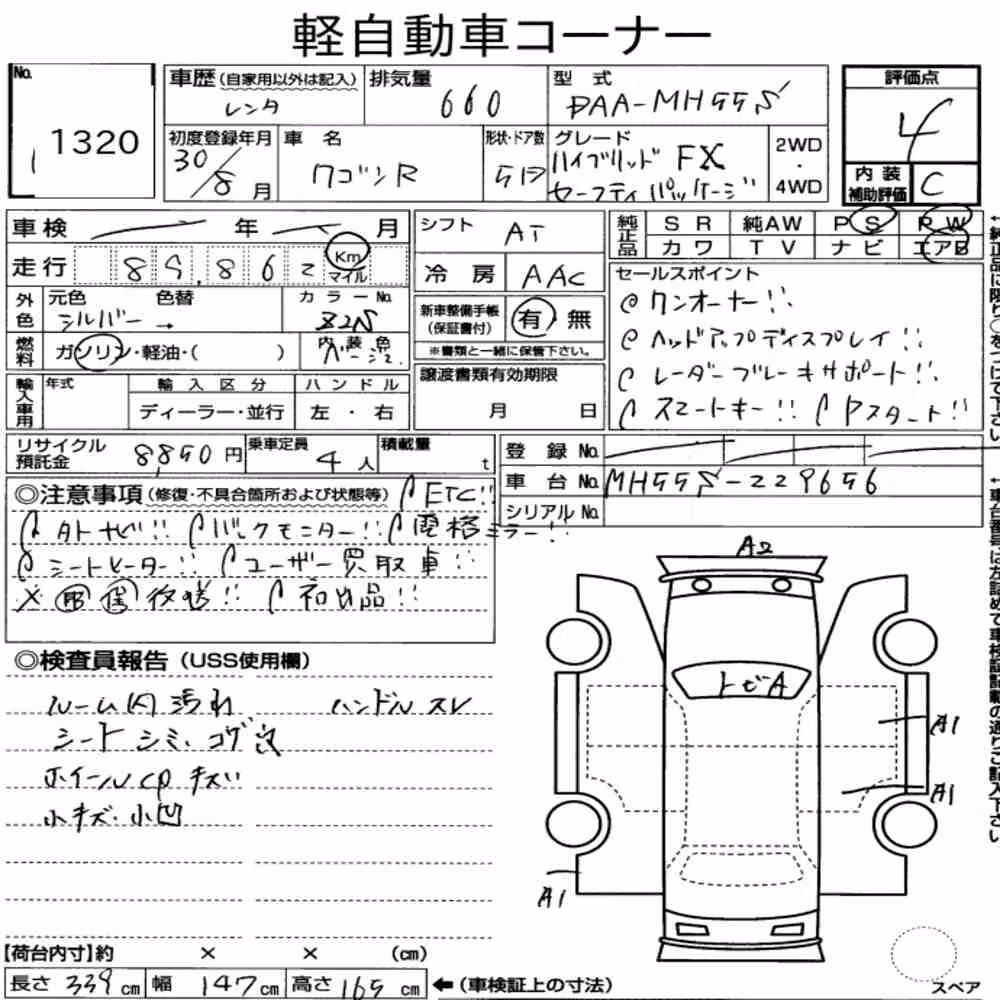 軽自動車コーナー
No. 1320
車歴(自家用以外は記入) レンタ
排気量 660
型式 DAA-MH55S
評価点 4
初度登録年月 30/8月
車名 ワゴンR
形状・ドア数 5D
グレード ハイブリッド FX
セーフティパッケージ
2WD・4WD
内装補助評価 C
車検 年 月
シフト AT
純正品 SR 純AW PS PW
カワ TV ナビ エアB
走行 89,862 Km マイル
冷房 AAC
セールスポイント
ワンオーナー!!
ヘッドアップディスプレイ!!
レーダーブレーキサポート!!
スマートキー!! Pスタート!!
外色 元色 シルバー 色替 → カラーNo. Z2S
新車整備手帳(保証書付) 有・無
※書類と一緒に保管下さい。
燃料 ガソリン・軽油・( )
内装色 ベージュ
譲渡書類有効期限
月 日
輸入車用 年式 輸入区分 ハンドル
ディーラー・並行 左・右
リサイクル預託金 8,850円
乗車定員 4人
積載量 t
登録No.
車台No. MH55S-229656
シリアルNo.
◎注意事項(修復・不具合箇所および状態等) ETC!!
外ナビ!! バックモニター!! 電格ミラー!!
シートヒーター!! ユーザー買取車!!
× 取 保 後送!! 初出品!!
◎検査員報告(USS使用欄)
ルーム内汚れ ハンドルスレ
シートシミ、コゲ穴
ホイールCPキズ
小キズ・小凹
A2
トビA
A1
A1
A1
【荷台内寸】約 × × (cm)
長さ 339cm 幅 147cm 高さ 165cm ←(車検証上の寸法)
スペア
←純正品に限り○をつけて下さい
←車台番号は左詰めで車検証記載の通りご記入下さい